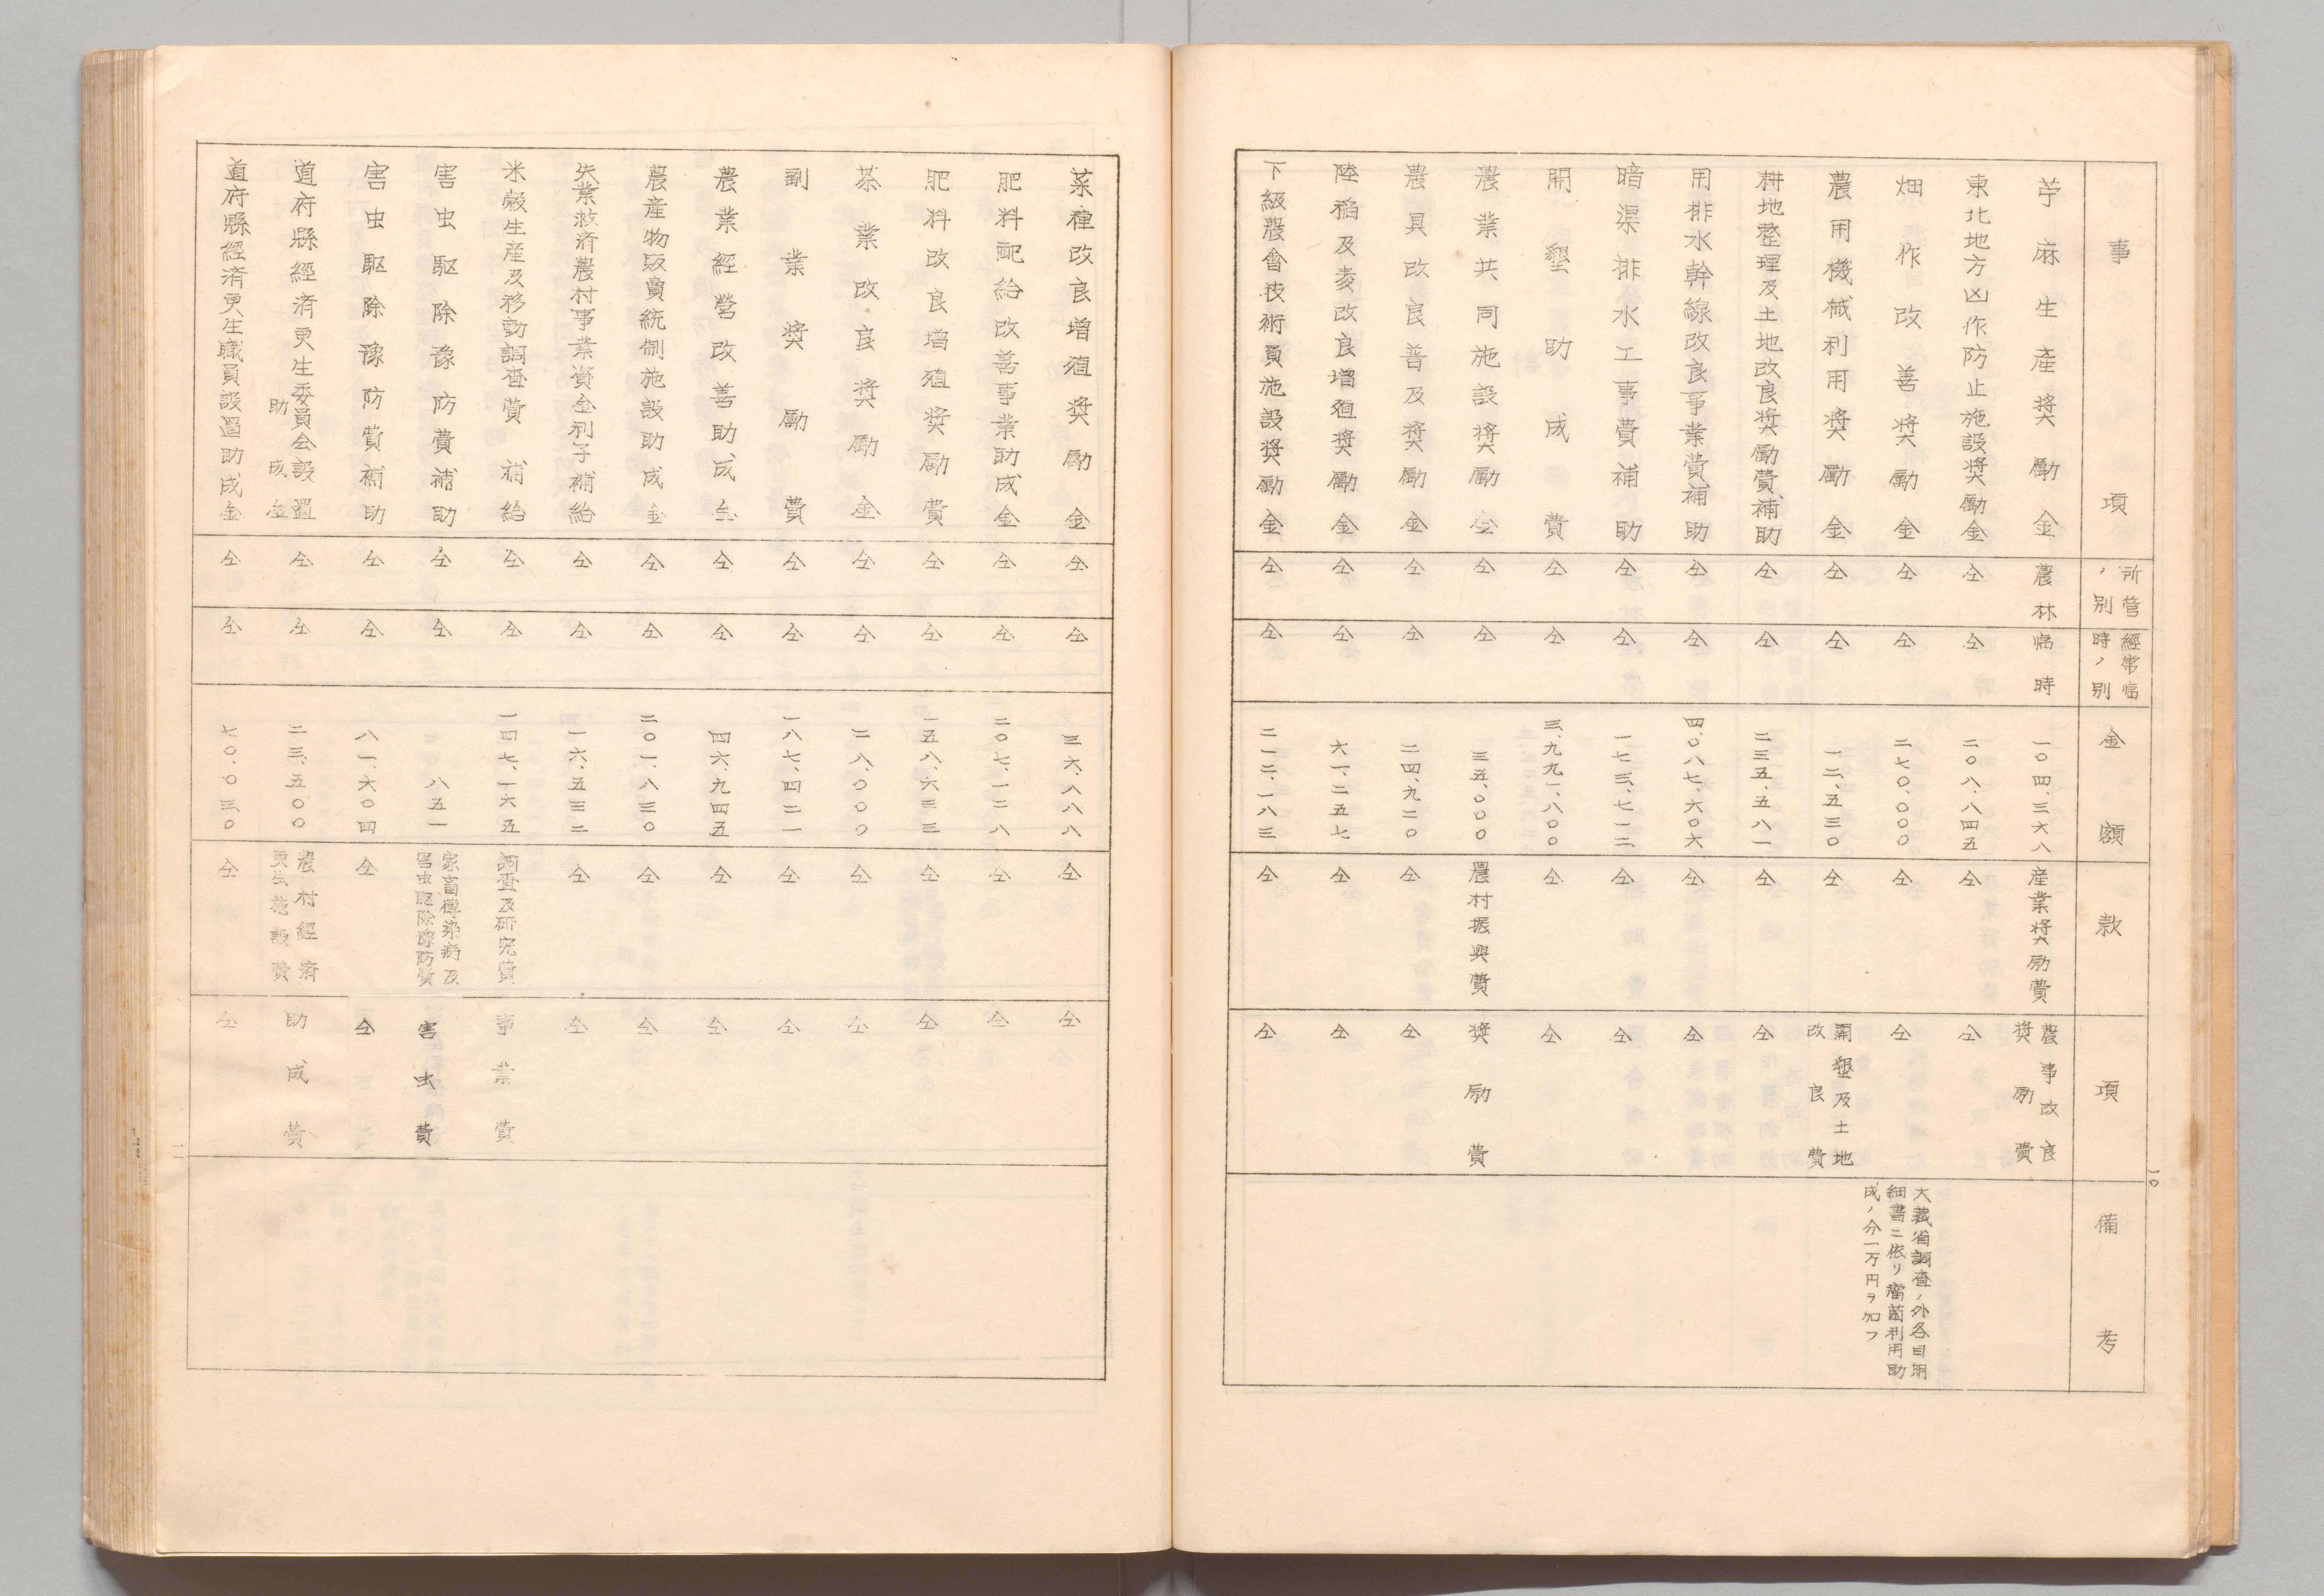 事項 所管ノ別 經常臨時ノ別 金額 款 項 備考
苧麻生產奬勵金 農林 臨時 一〇四、三六八 産業奬励費 農事改良奬励費
東北地方凶作防止施設奬勵金 仝 仝 二〇八、八四五 仝 仝
畑作改善奬勵金 仝 仝 二七〇、〇〇〇 仝 仝 大藏省調査ノ外各目明細書ニ依リ 利用助成ノ分一万円ヲ加フ
農用機械利用奬勵金 仝 仝 一二、五三〇 仝 開墾及土地改良費
耕地整理及土地改良奬勵費補助 仝 仝 二三五、五八一 仝 仝
用排水幹線改良事業費補助 仝 仝 四、〇八七、六〇六 仝 仝
暗渠排水工事費補助 仝 仝 一七三、七一二 仝 仝
開墾助成費 仝 仝 三、九九一、八〇〇 仝 仝
農業共同施設奬勵金 仝 仝 三五、〇〇〇 農村振興費 奬励費
農具改良普及奬勵金 仝 仝 二四、九二〇 仝 仝
陸稲及麦改良增殖奬勵金 仝 仝 六一、二五七 仝 仝
下級農會技術員施設奬勵金 仝 仝 二一二、一八三 仝 仝
一〇
菜種改良増殖奬勵金 仝 仝 三六、八八八 仝 仝
肥料配給改善事業助成金 仝 仝 二〇七、一二八 仝 仝
肥料改良增殖奬勵費 仝 仝 一五八、六三三 仝 仝
茶業改良奬勵金 仝 仝 二八、〇〇〇 仝 仝
副業奬勵費 仝 仝 一八七、四二一 仝 仝
農業經營改善助成金 仝 仝 四六、九四五 仝 仝
農産物販賣統制施設助成金 仝 仝 二〇一、八三〇 仝 仝
失業救済農村事業資金利子補給 仝 仝 一六、五三二 仝 仝
米穀生産及移動調査費補給 仝 仝 一四七、一六五 調査及研究費 事業費
害虫駆除豫防費補助 仝 仝 八五一 家畜傳染病及害虫駆除豫防費 害虫費
害虫駆除豫防費補助 仝 仝 八一、六〇四 仝 仝
道府縣經済更生委員会設置助成金 仝 仝 二三、五〇〇 農村経済更生施設費 助成費
道府縣經済更生職員設置助成金 仝 仝 七〇、〇三〇 仝 仝
一一